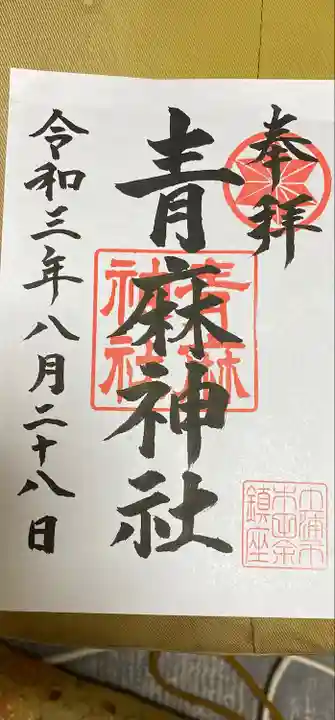 奉拝
青麻神社
青麻
神社
鎮座
令和三年八月二十八日